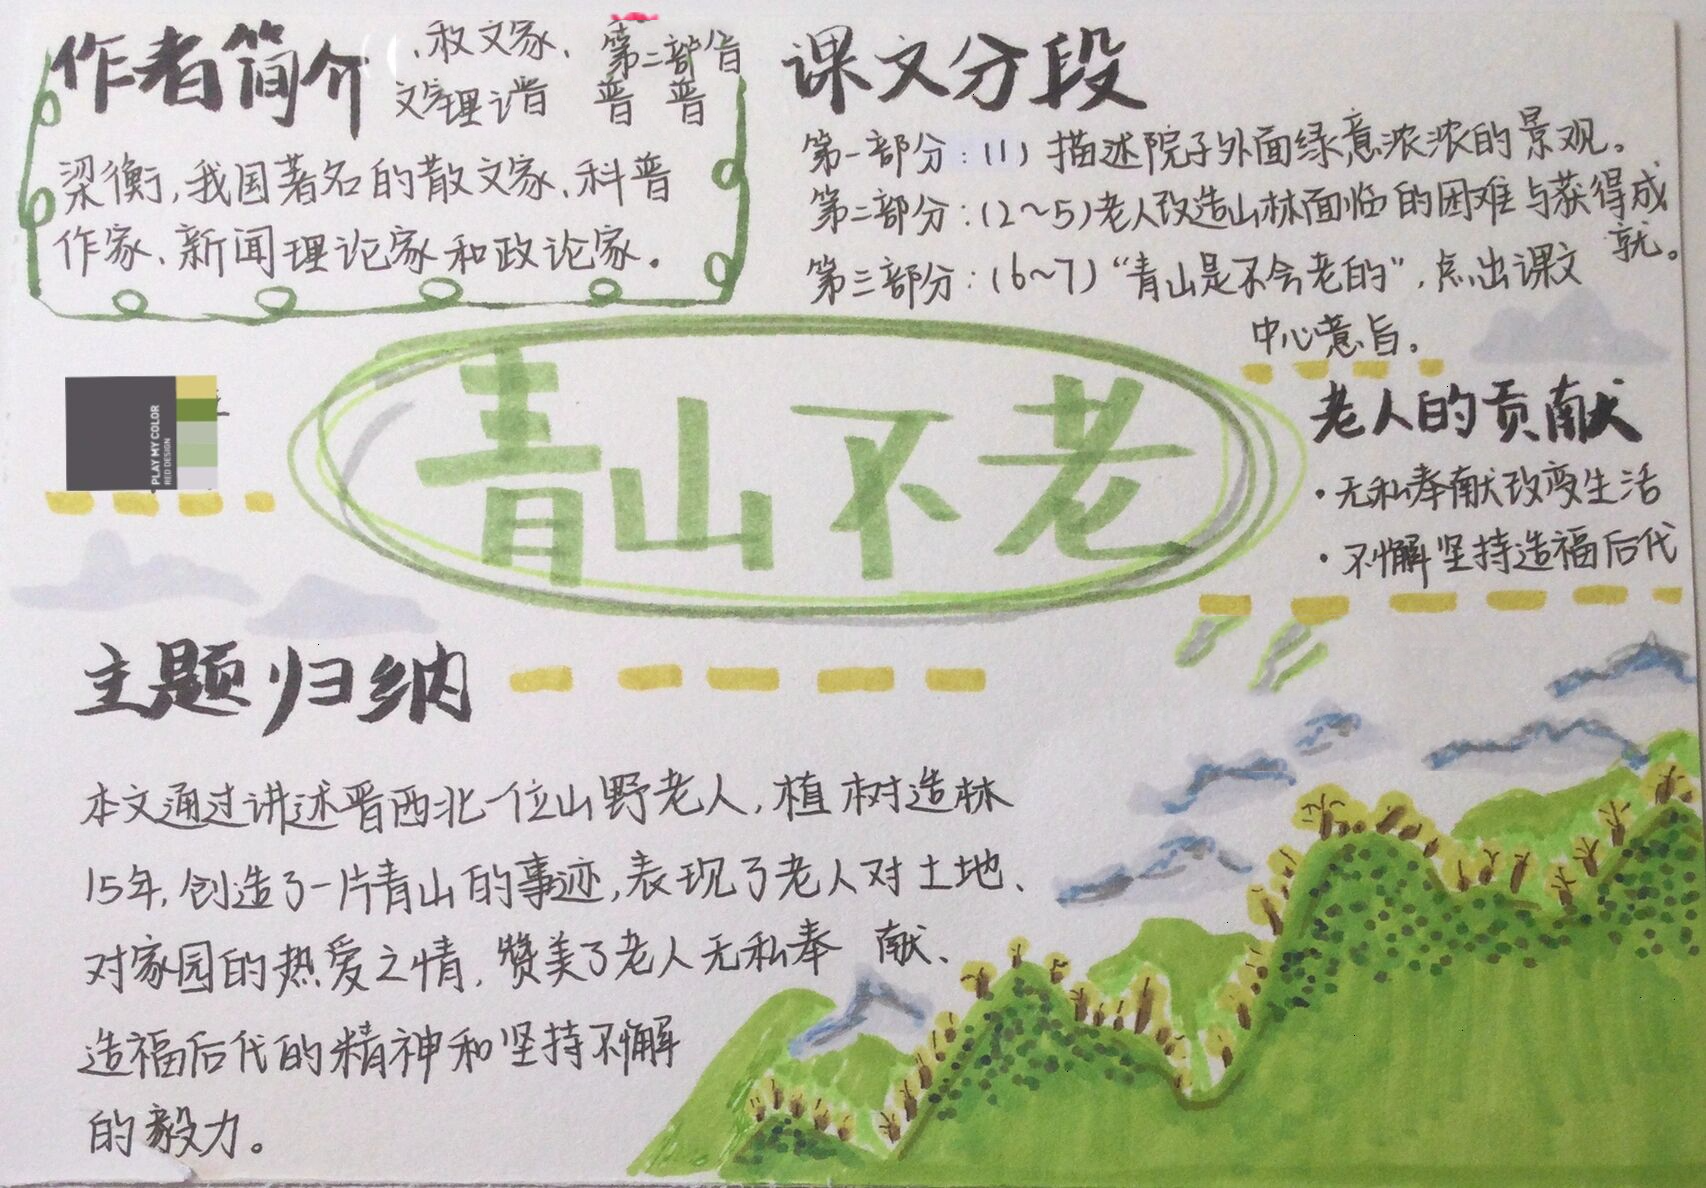 作者简介
梁衡,我国著名的散文家、科普
作家、新闻理论家和政论家。
课文分段
第一部分:(1)描述院子外面绿意浓浓的景观。
第二部分:(2~5)老人改造山林面临的困难与获得成
就。
第三部分:(6~7)“青山是不会老的”,点出课文
中心意旨。
青山不老
PLAY MY COLOR
RED DESIGN
老人的贡献
·无私奉献改变生活
·不懈坚持造福后代
主题归纳
本文通过讲述晋西北一位山野老人,植树造林
15年,创造了一片青山的事迹,表现了老人对土地、
对家园的热爱之情,赞美了老人无私奉 献、
造福后代的精神和坚持不懈
的毅力。